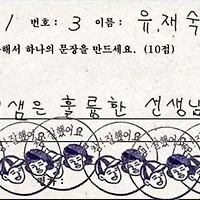 1 번호: 3 이름: 유,재숙
해서 하나의 문장을 만드세요. (10점)
샘은 훌륭한 선생님
참! 잘했어요 참! 잘했어요 참! 잘했어요